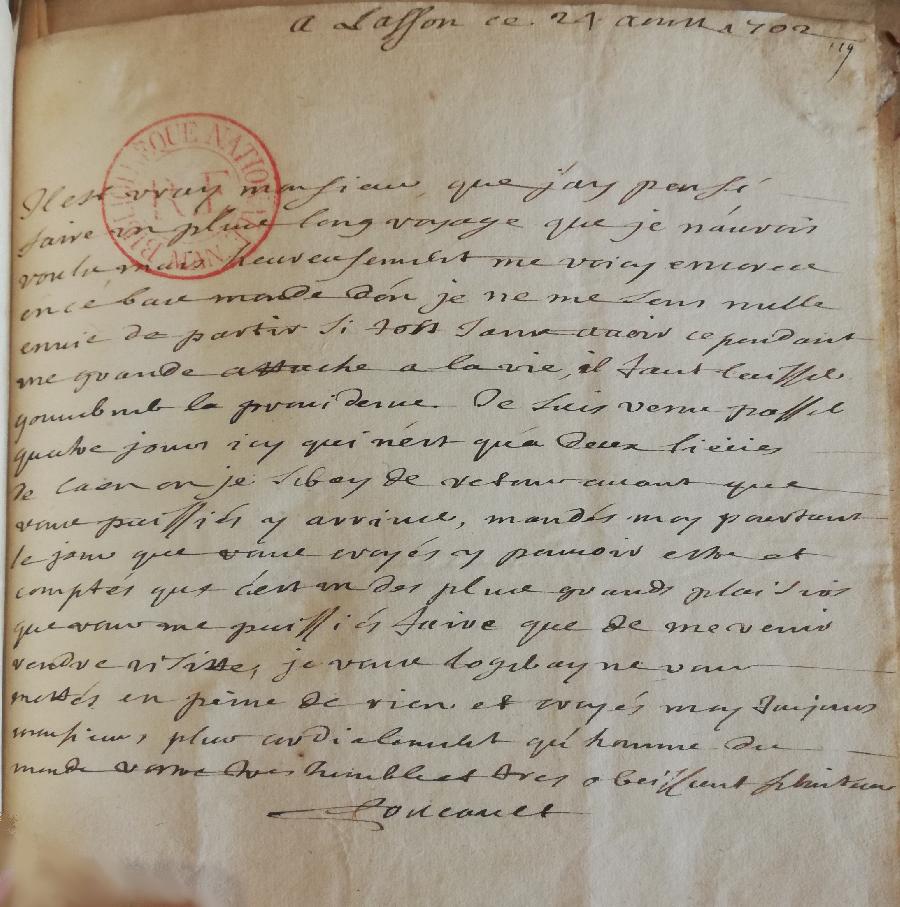 A Lasson ce 24 aoust 1702
119
BIBLIOTHEQUE NATIONALE
R F
Il est vray monsieur, que j'ay pensé
faire un plus long voyage que je n'auvois
voulu mais heureusement me voicy encorre
en ce bas monde d'ou je ne me sens nulle
envie de partir si tost sans avoir cependant
une grande attache a la vie, il faut laisser
gouverner la providence. Je suis venu passer
quatre jours icy qui n'est qu'a deux lieües
de Caen ou je seray de retour avant que
vous puissiés y arriver, mandés moy pourtant
le jour que vous croyés y pouvoir estre et
comptés que c'est un des plus grands plaisirs
que vous me puissiés faire que de me venir
rendre visitte, je vous logeray ne vous
mettés en peine de rien et croyés moy toujours
monsieur, plus cordialement qu'homme du
monde vostre tres humble et tres obeissant serviteur
Foucault